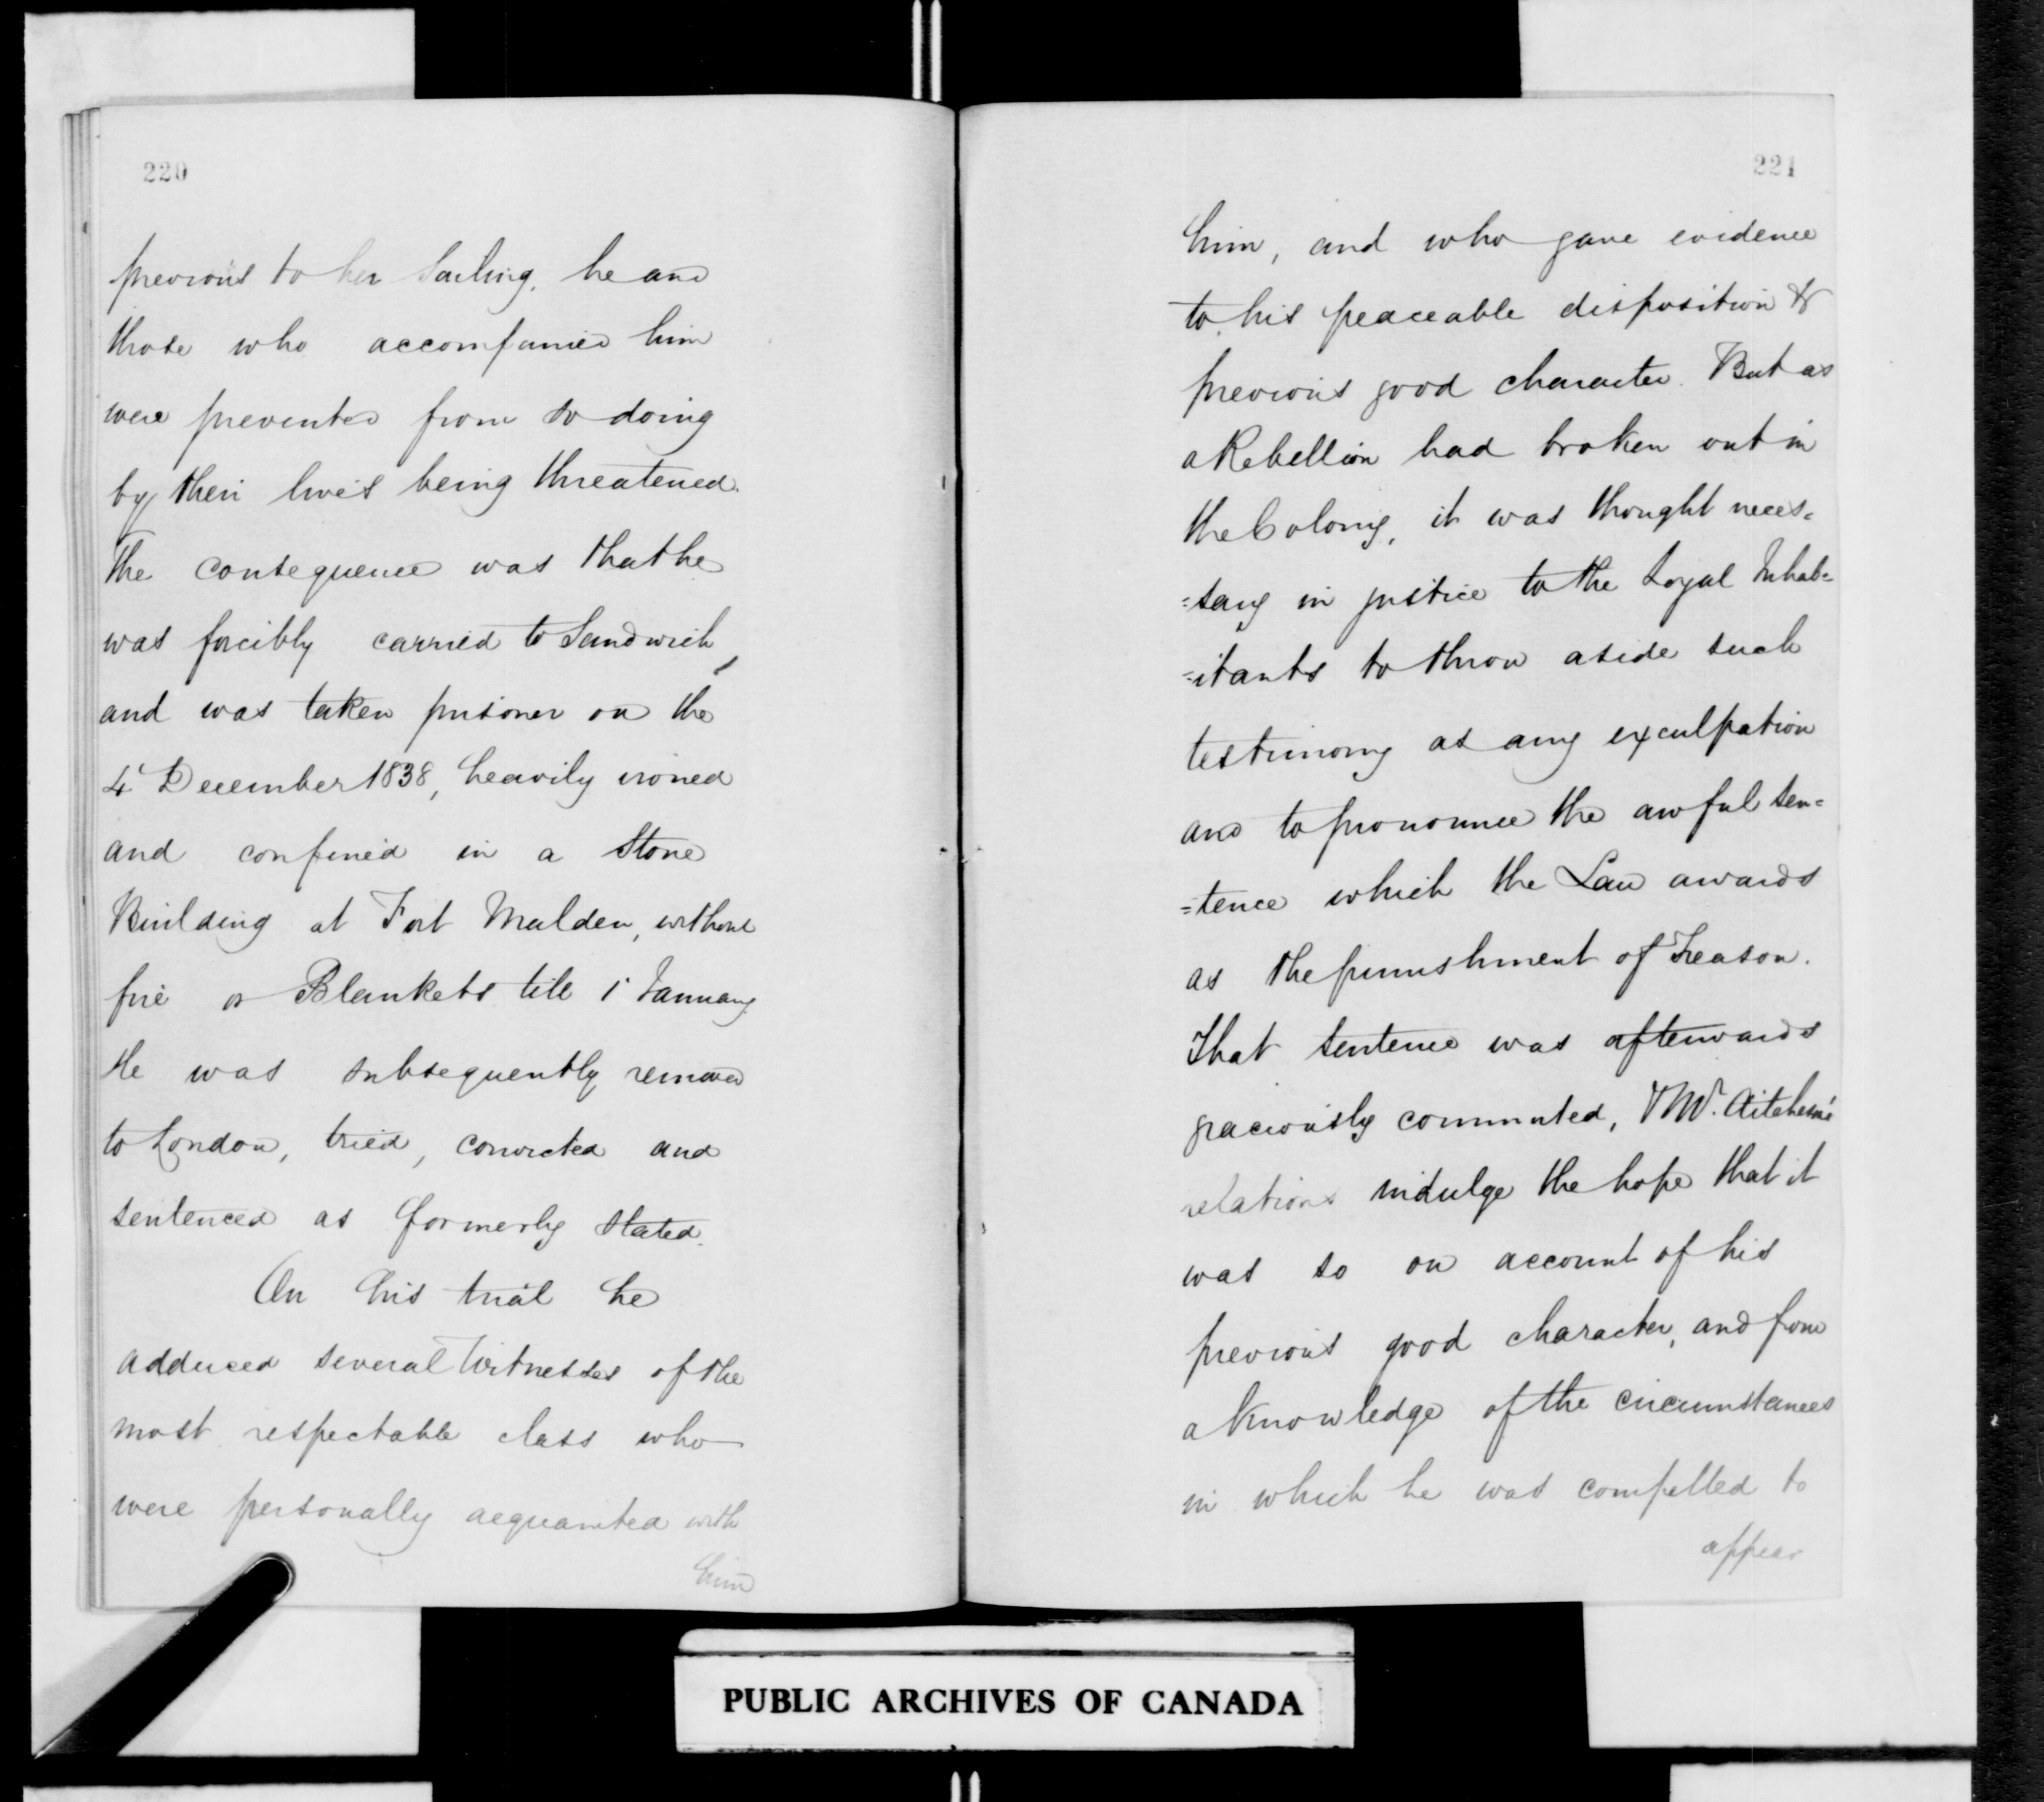 220
previous to her Sailing, he and
those who accompanied him
were prevented from so doing
by their lives being threatened.
The consequence was that he
was forcibly carried to Sandwich,
and was taken prisoner on the
4' December 1838, heavily ironed
and confined in a Stone
Building at Fort Malden, without
fire or Blankets till 1' January
He was subsequently removed
to London, tried, convicted and
sentenced as formerly stated.
On his trial he
adduced several Witnesses of the
most respectable class who
were personally acquainted with
him
221
him, and who gave evidence
to his peaceable disposition &
previous good character. But as
a Rebellion had broken out in
the Colony, it was thought neces=
=sary in justice to the Loyal Inhab=
=itants to throw aside such
testimony as any exculpation
and to pronounce the awful sen=
=tence which the Law awards
as the punishment of Treason.
That sentence was afterwards
graciously commuted, & Mr. Aitcheson's
relations indulge the hope that it
was so on account of his
previous good character, and from
a knowledge of the circumstances
in which he was compelled to
appear
PUBLIC ARCHIVES OF CANADA